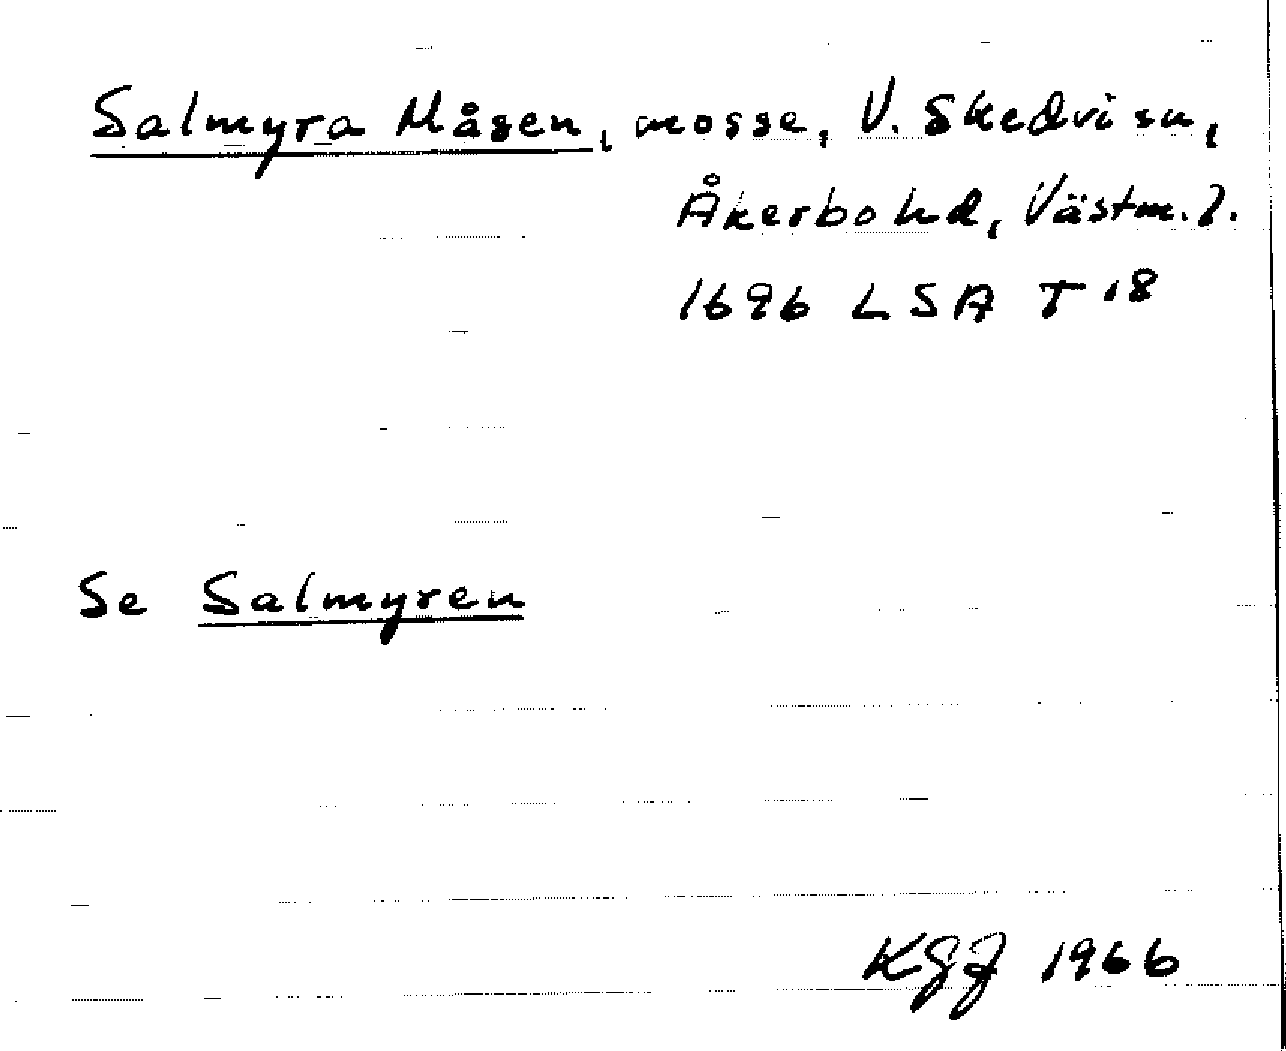 Salmyra Måsen, mosse, V. Skedvi sn,
Åkerbo hd, Västm. l.
1696 LSA T 18
Se Salmyren
KGJ 1966